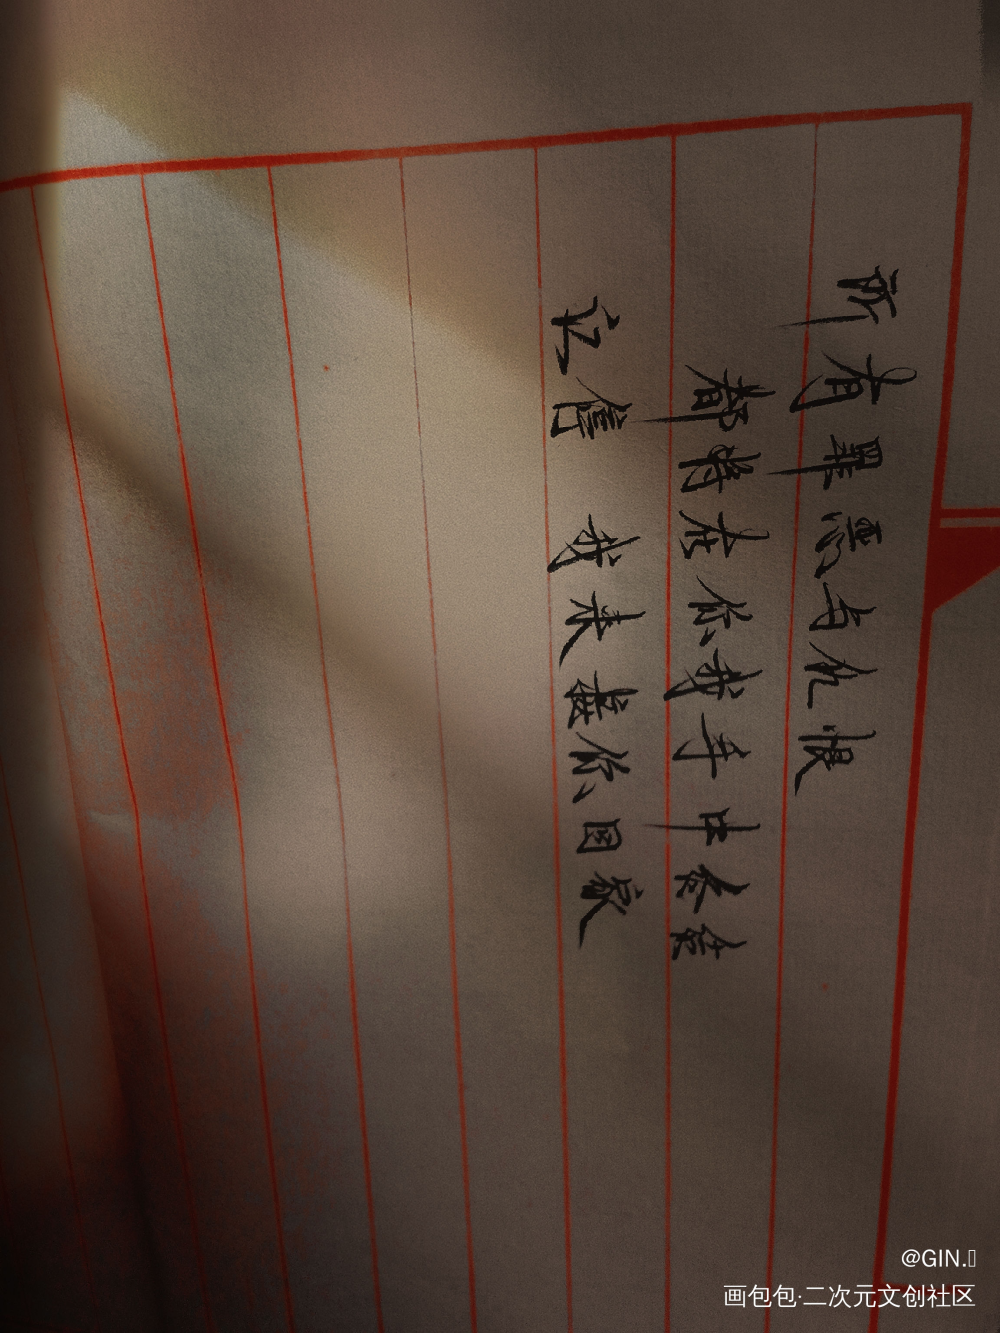 所有罪恶与仇恨
都将在你我手中合葬
让信我来替你回家
@GIN.
画包包·二次元文创社区